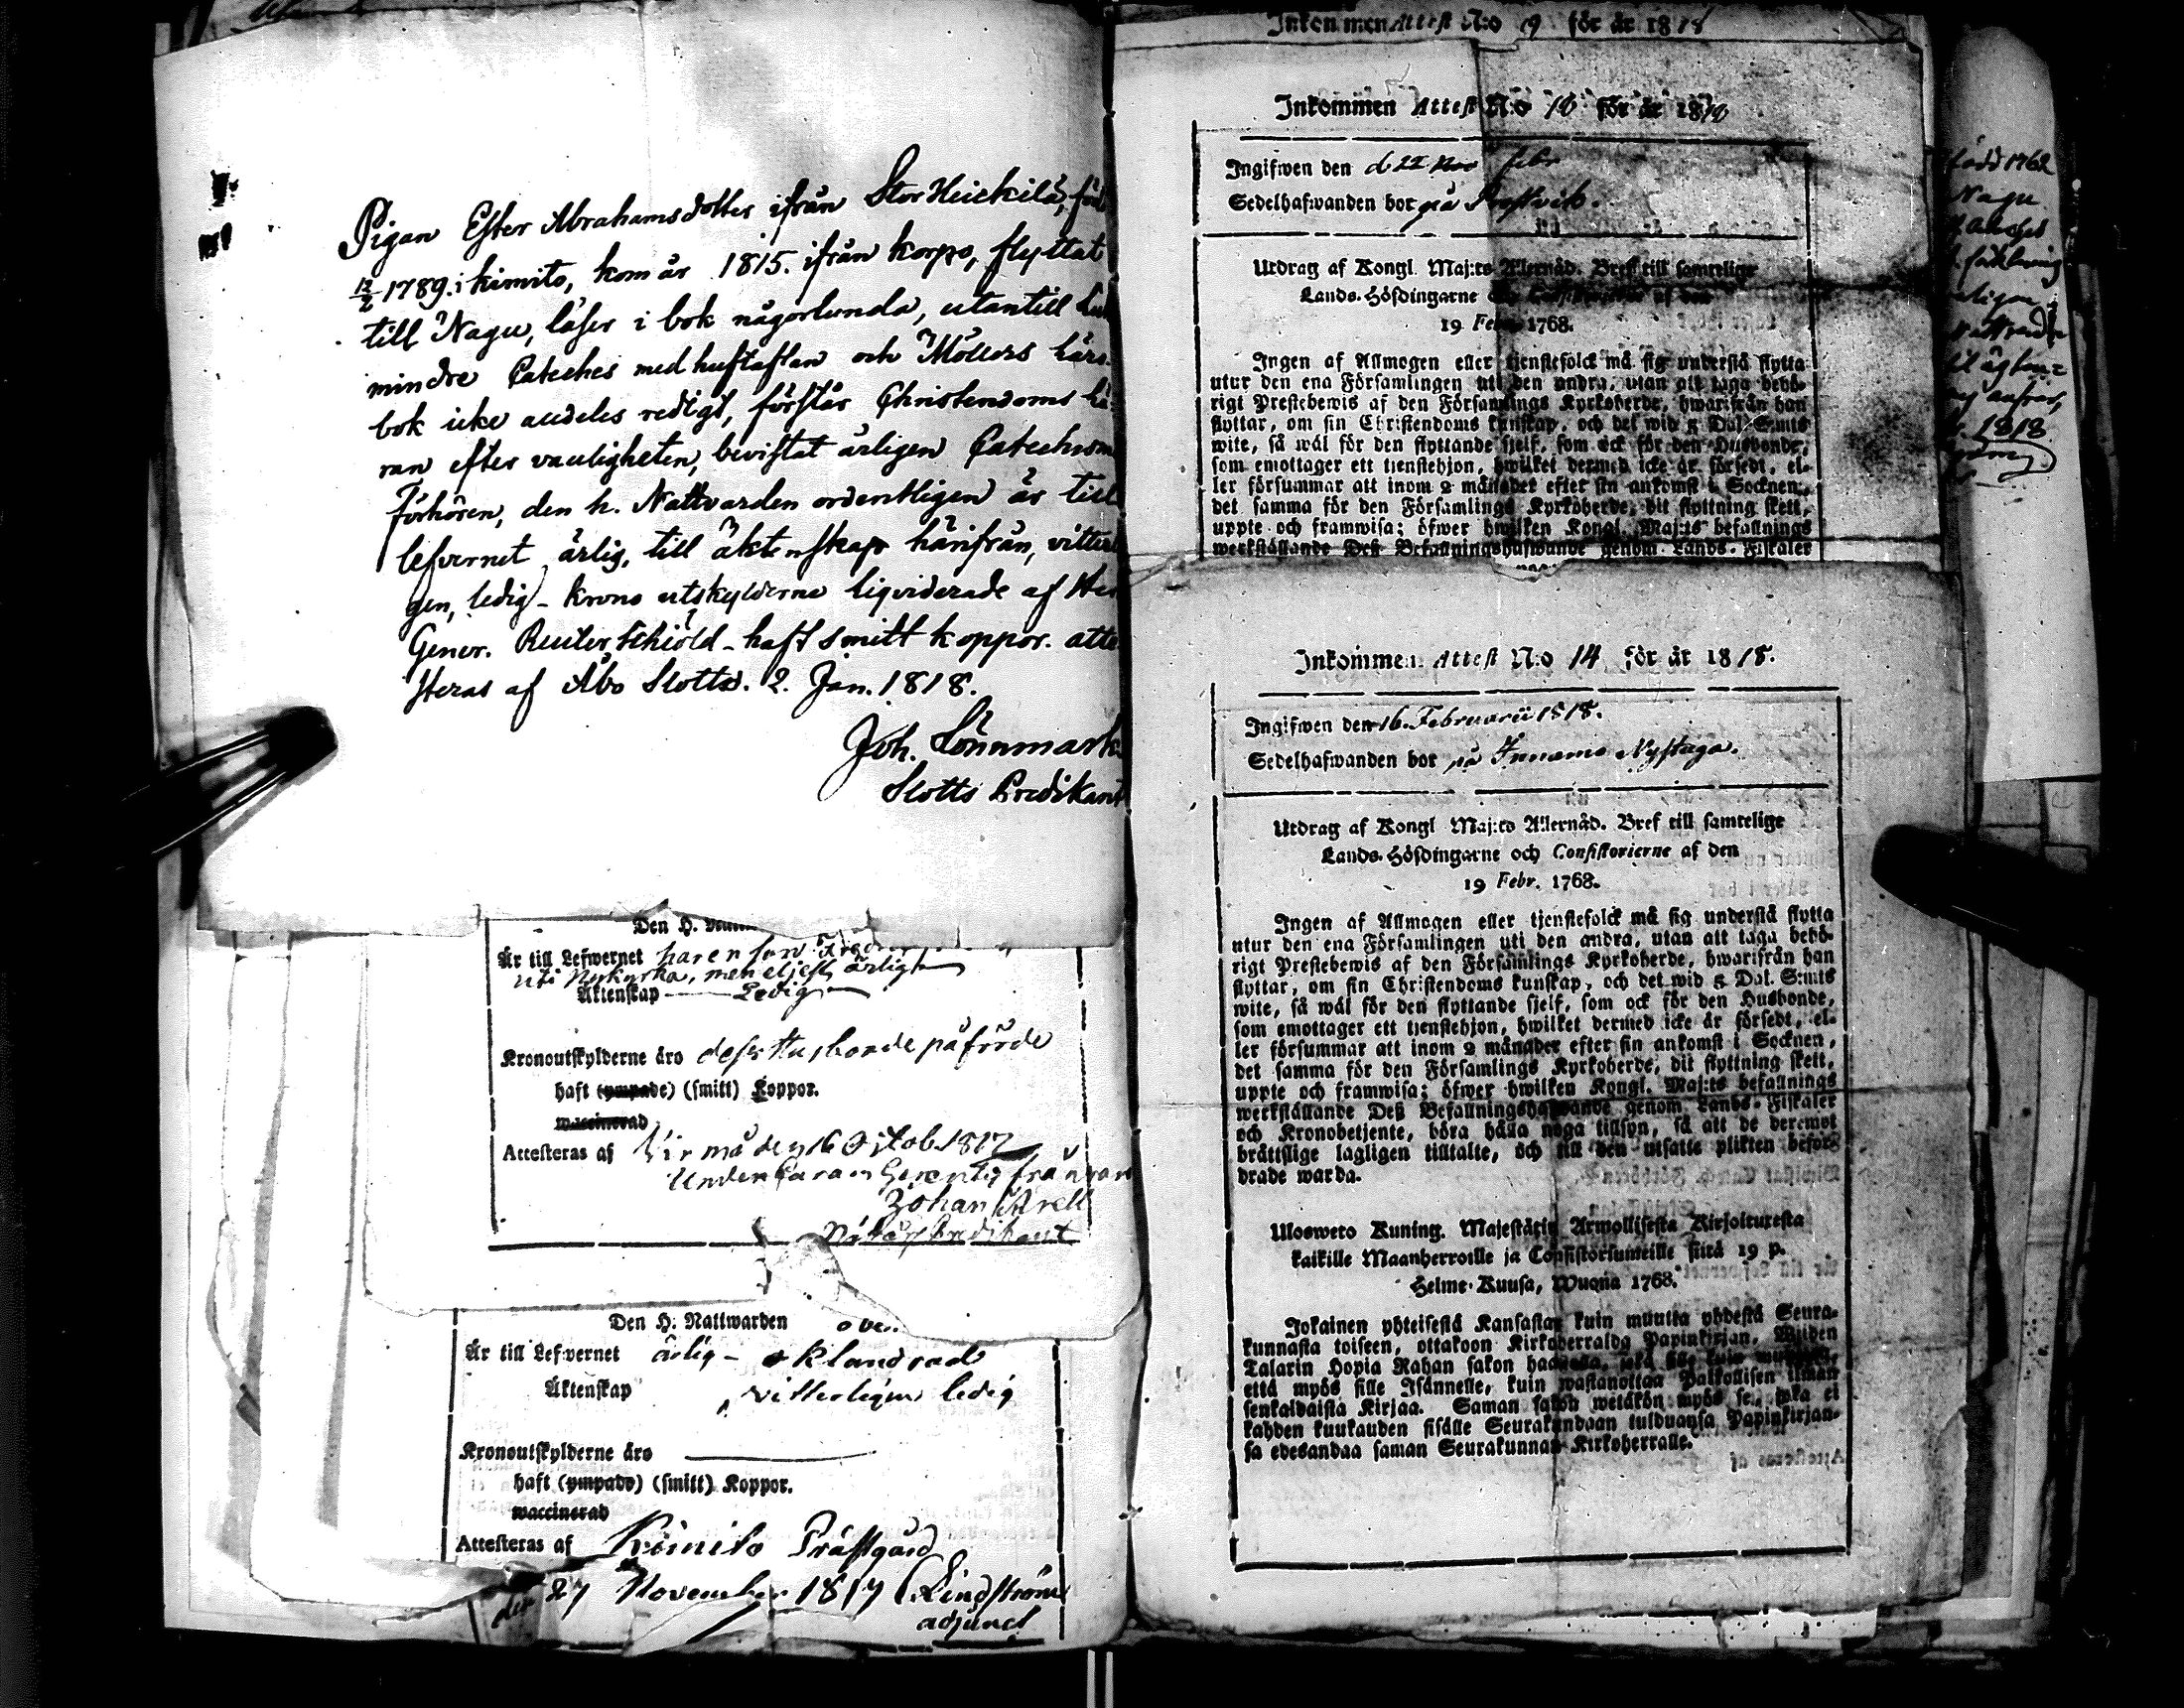 Pigan Ester Abrahamsdotter ifrån Stor Heickilä, föd
12/2 1789. i kimito, kom år 1815. ifrån korpo, flyttat
till Nagu, läser i bok någorlunda, utantill
mindre Cateches med hustaflan och Möllers
bok icke aldeles redigt, förstår Christendoms
ran efter vanligheten, bevistat årligen
förhören, den h. Nattvarden ordentligen är till
lefvernet ärlig, till äktenskap härifrån,
gen, ledig - krono utskylderne liqviderade af
Gener. Reuterskiöld - haft smitt koppor. atte
steras af Åbo Slott d. 2. Jan. 1818.
Joh. Lönnmark
Slotts Predikant
Den H.
Är till Lefwernet har en son
uti Nykyrka, men eljest ärlig
Äktenskap Ledig
Kronoutskylderne äro dess Husbonde påförde
haft (ympade) (smitt) Koppor.
waccinerad
Attesteras af Virmo den 16 Octob. 1817
Johan Arell
Predikant
Den H. Nattwarden
Är till Lefwernet ärlig - oklandrad
Äktenskap , vitterligen ledig
Kronoutskylderne äro
haft (ympade) (smitt) Koppor.
waccinerad
Attesteras af Kimito Prästgård
den 27 November 1817 Lindström
adjunct
Inkommen Attest N:o 9 för år 1818
Inkommen Attest N:o 10 för år 1818
Ingifwen den d. 22 febr
Sedelhafwanden bor på Prostvik.
Utdrag af Kongl. Maj:ts Allernåd. Bref till samtelige
Lands-Höfdingarne och Consistorierne af den
19 Febr. 1768.
Ingen af Allmogen eller tjenstefolck må sig understå flytta
utur den ena Församlingen uti den andra, utan att taga behö-
rigt Prestebewis af den Församlings Kyrkoherde, hwarifrån han
flyttar, om sin Christendoms kunskap, och det wid 5 Dal. S:mts
wite, så wäl för den flyttande sjelf, som ock för den Husbonde,
som emottager ett tjenstehjon, hwilket dermed icke är försedt, el-
ler försummar att inom 2 månader efter sin ankomst i Socknen,
det samma för den Församlings Kyrkoherde, dit flyttning skett,
uppte och framwisa; öfwer hwilken Kongl. Maj:ts befallnings
werkställande Deß Befallningshafwande genom Lands-Fiskaler
Inkommen Attest N:o 14 för år 1818.
Ingifwen den 16. Februarii 1818.
Sedelhafwanden bor på Innamo Nystuga.
Utdrag af Kongl Maj:ts Allernåd. Bref till samtelige
Lands-Höfdingarne och Consistorierne af den
19 Febr. 1768.
Ingen af Allmogen eller tjenstefolck må sig understå flytta
utur den ena Församlingen uti den andra, utan att taga behö-
rigt Prestebewis af den Församlings Kyrkoherde, hwarifrån han
flyttar, om sin Christendoms kunskap, och det wid 5 Dal. S:mts
wite, så wäl för den flyttande sjelf, som ock för den Husbonde,
som emottager ett tjenstehjon, hwilket dermed icke är försedt, el-
ler försummar att inom 2 månader efter sin ankomst i Socknen,
det samma för den Församlings Kyrkoherde, dit flyttning skett,
uppte och framwisa; öfwer hwilken Kongl. Maj:ts befallnings
werkställande Deß Befallningshafwande genom Lands-Fiskaler
och Kronobetjente, böra hålla noga tillsyn, så att de deremot
bråttslige lagligen tilltalte, och till den utsatte plikten befor-
drade warda.
Ulosweto Kuning. Majestätin Armollisesta Kirjoituresta
kaikille Maanherroille ja Consistoriumeille siitä 19 p.
Helme-Kuusa, Wuonna 1768.
Jokainen yhteisestä Kansastan kuin muutta yhdestä Seura-
kunnasta toiseen, ottakoon Kirkoherralda Papinkirjan, Wiiden
Talarin Hopia Rahan sakon
että myös sille Isännelle, kuin wastanottaa Palkollisen ilman
senkaldaista Kirjaa. Saman sakon wetäkön myös se, joka ei
kahden kuukauden sisälle Seurakundaan tulduansa Papinkirjan-
sa edesandaa saman Seurakunnan Kirkoherralle.
född 1762
Nagu
1818